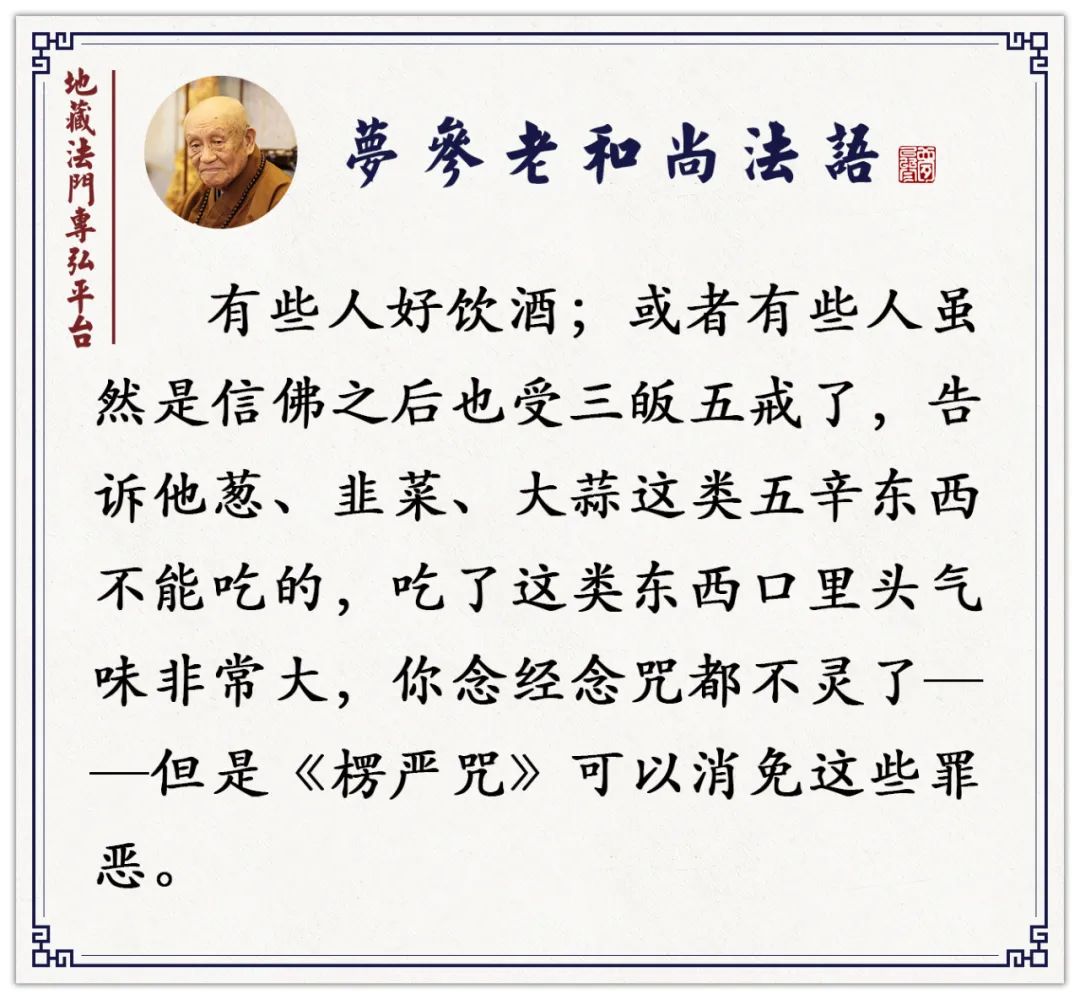 地藏法門專弘平台
夢參老和尚法語
有些人好饮酒；或者有些人虽
然是信佛之后也受三皈五戒了，告
诉他葱、韭菜、大蒜这类五辛东西
不能吃的，吃了这类东西口里头气
味非常大，你念经念咒都不灵了—
—但是《楞严咒》可以消免这些罪
恶。